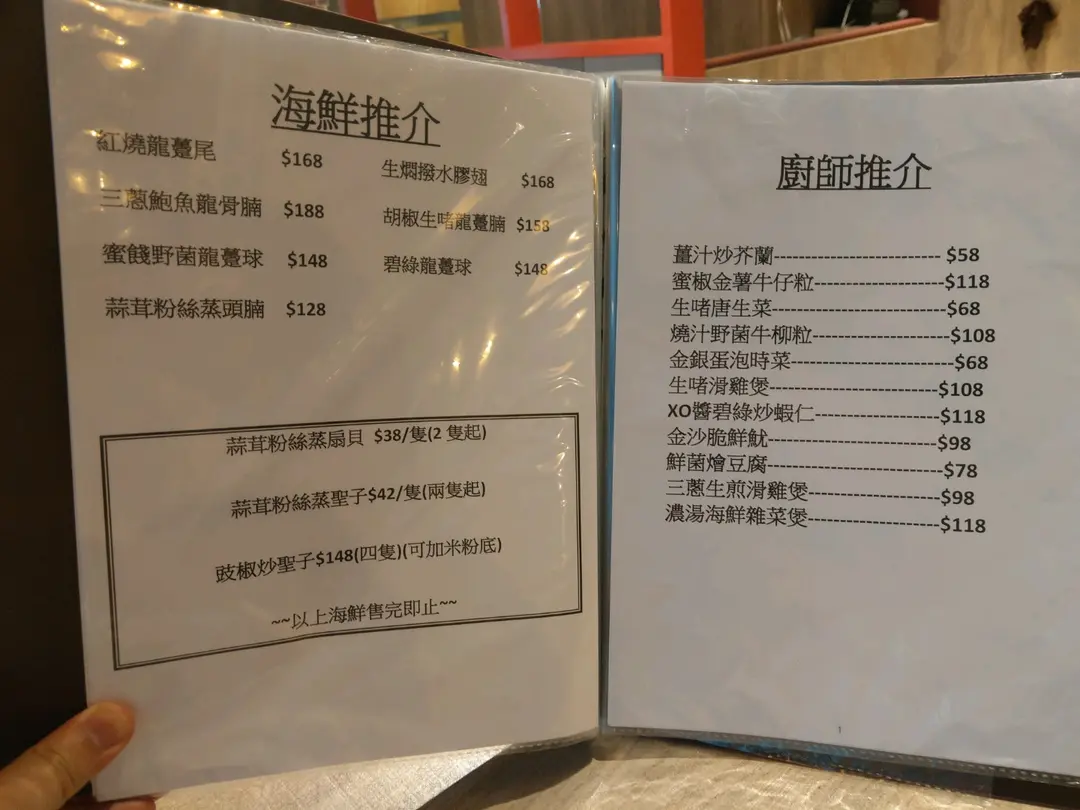 海鮮推介
紅燒龍躉尾 $168
三蔥鮑魚龍骨腩 $188
蜜餞野菌龍躉球 $148
蒜茸粉絲蒸頭腩 $128
生燜撥水膠翅 $168
胡椒生啫龍躉腩 $158
碧綠龍躉球 $148
蒜茸粉絲蒸扇貝 $38/隻(2 隻起)
蒜茸粉絲蒸聖子$42/隻(兩隻起)
豉椒炒聖子$148(四隻)(可加米粉底)
~~以上海鮮售完即止~~
廚師推介
薑汁炒芥蘭-------------------------- $58
蜜椒金薯牛仔粒--------------------$118
生啫唐生菜---------------------------$68
燒汁野菌牛柳粒---------------------$108
金銀蛋泡時菜-------------------------$68
生啫滑雞煲--------------------------$108
XO醬碧綠炒蝦仁-------------------$118
金沙脆鮮魷--------------------------$98
鮮菌燴豆腐---------------------------$78
三蔥生煎滑雞煲--------------------$98
濃湯海鮮雜菜煲--------------------$118